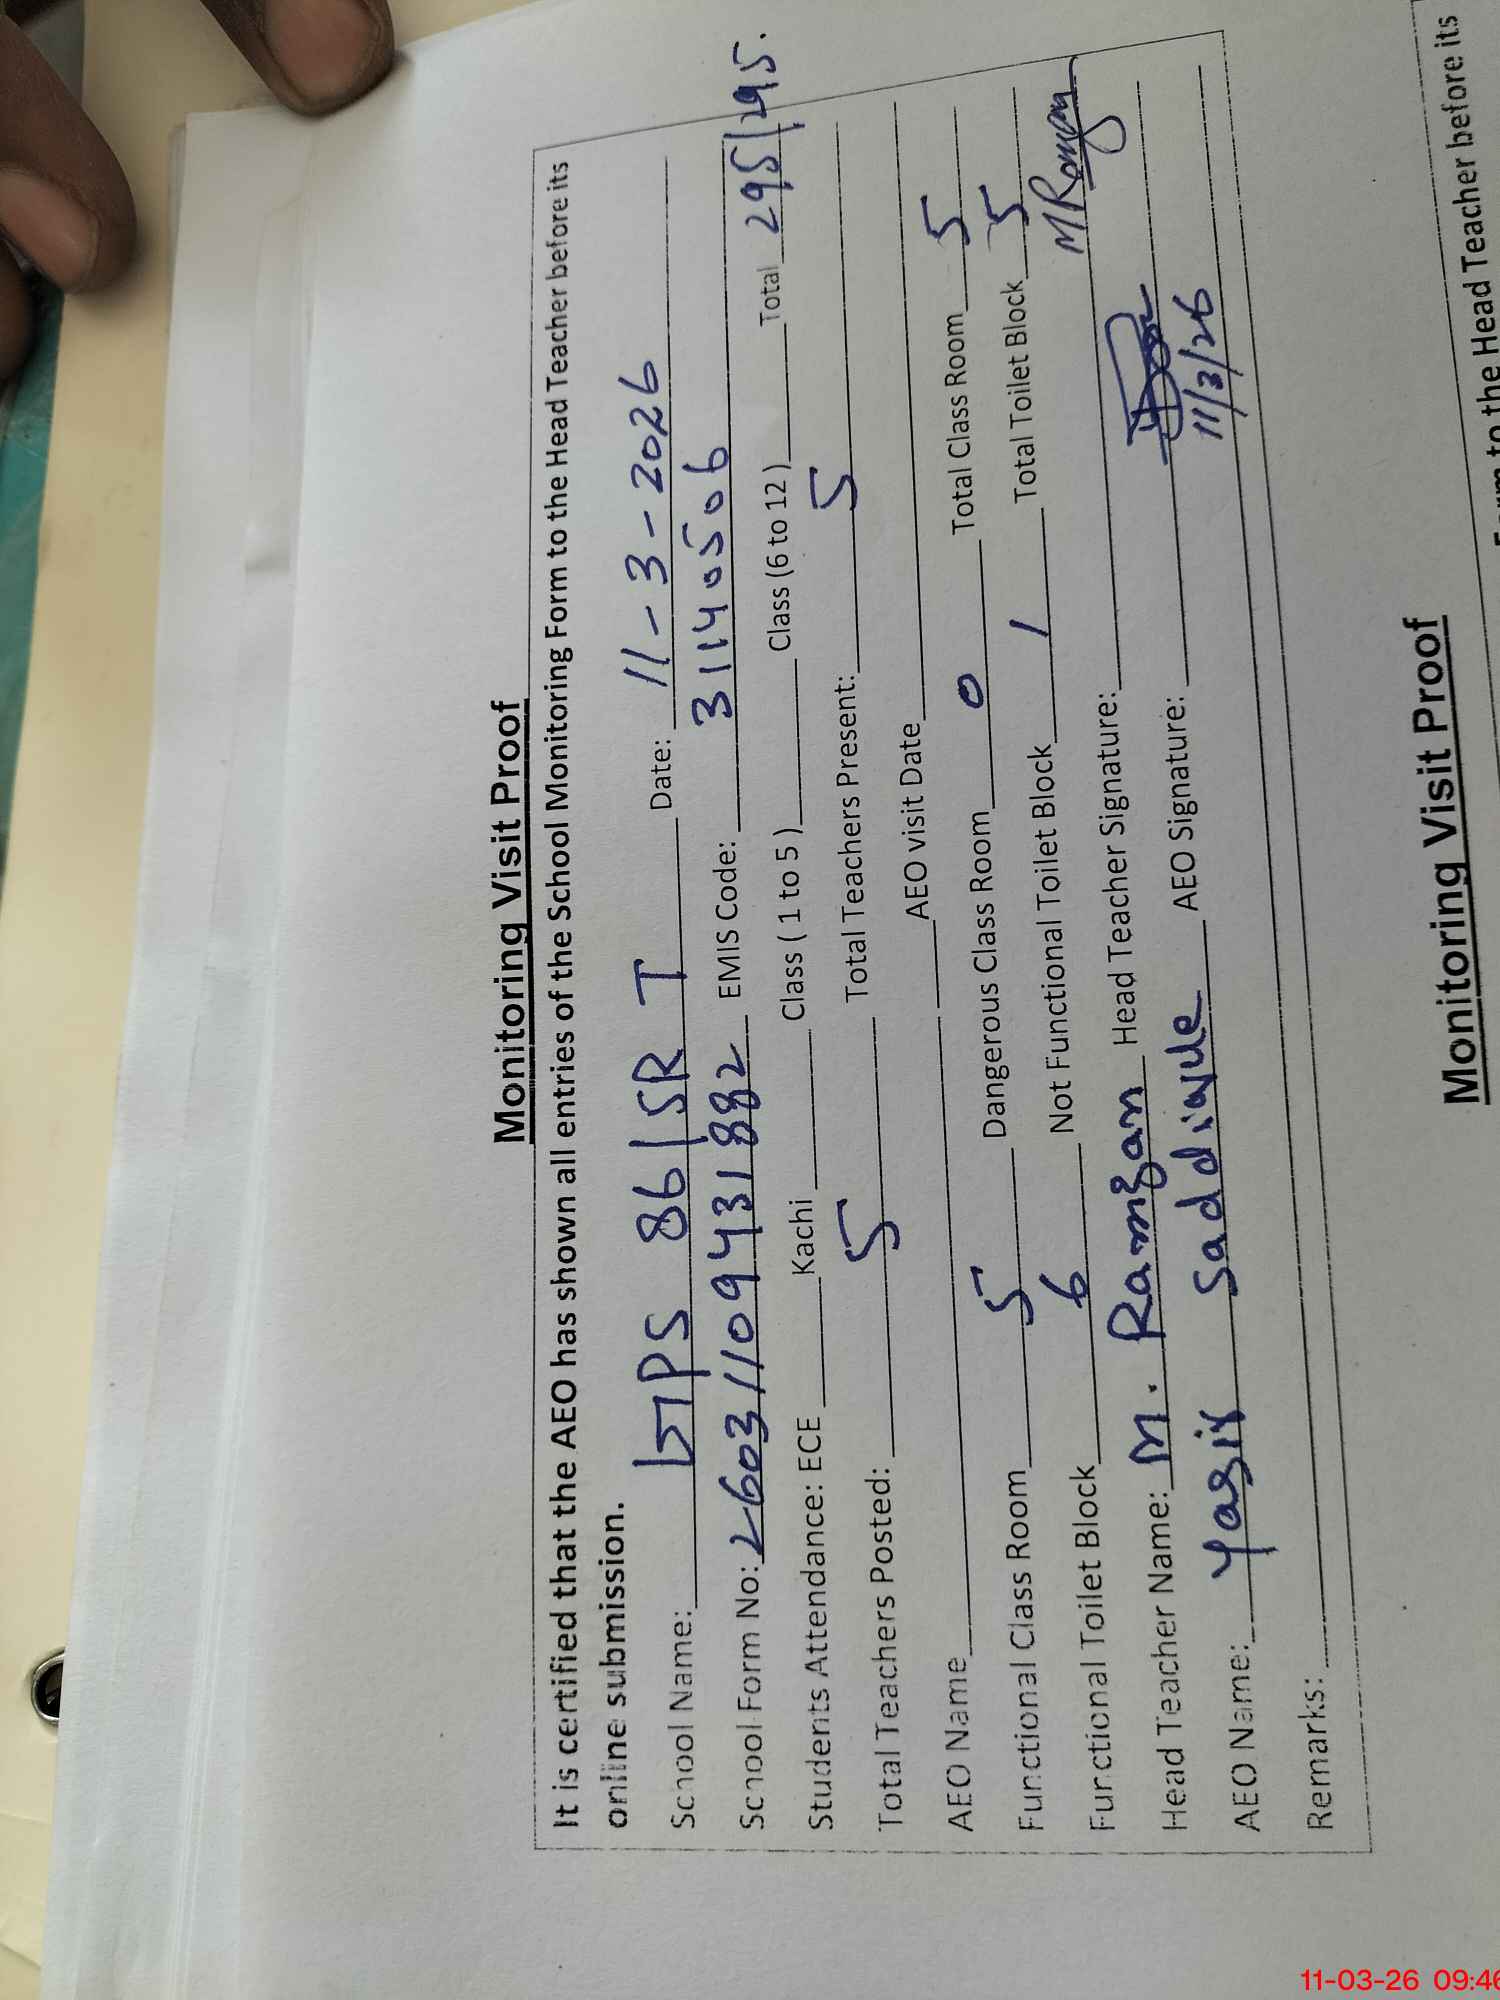 Monitoring Visit Proof
It is certified that the AEO has shown all entries of the School Monitoring Form to the Head Teacher before its
online submission.
School Name: GPS 86/SR T Date: 11-3-2026
School Form No: 26031109431882 EMIS Code: 31140506
Students Attendance: ECE Kachi Class ( 1 to 5 ) Class (6 to 12 ) Total 295/295.
Total Teachers Posted: 5 Total Teachers Present: 5
AEO Name AEO visit Date
Functional Class Room 5 Dangerous Class Room 0 Total Class Room 5
Functional Toilet Block 6 Not Functional Toilet Block 1 Total Toilet Block 5
Head Teacher Name: M. Ramzan Head Teacher Signature: MRamzan
AEO Name: Yasir Saddique AEO Signature:
11/3/26
Remarks:
Monitoring Visit Proof
Form to the Head Teacher before its
11-03-26 09:46